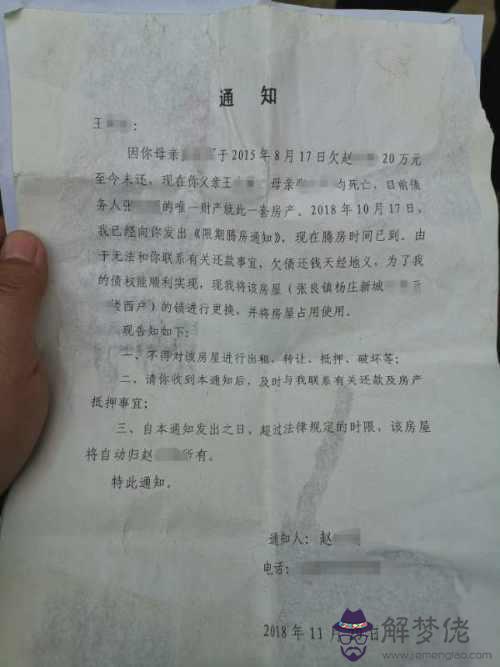 通知
王：
因你母亲于2015年8月17日欠赵20万元
至今未还，现在你父亲王 母亲 均死亡，目前债
务人张 的唯一财产就此一套房产。2018年10月17日，
我已经向你发出《限期腾房通知》，现在腾房时间已到。由
于无法和你联系有关还款事宜，欠债还钱天经地义，为了我
的债权能顺利实现，现我将该房屋（张良镇杨庄新城
楼西户）的锁进行更换，并将房屋占用使用。
现告知如下：
一、不得对该房屋进行出租、转让、抵押、破坏等；
二、请你收到本通知后，及时与我联系有关还款及房产
抵押事宜；
三、自本通知发出之日，超过法律规定的时限，该房屋
将自动归赵 所有。
特此通知。
通知人：赵
电话：
2018年11月 日
解梦佬
www.jiemenglao.com